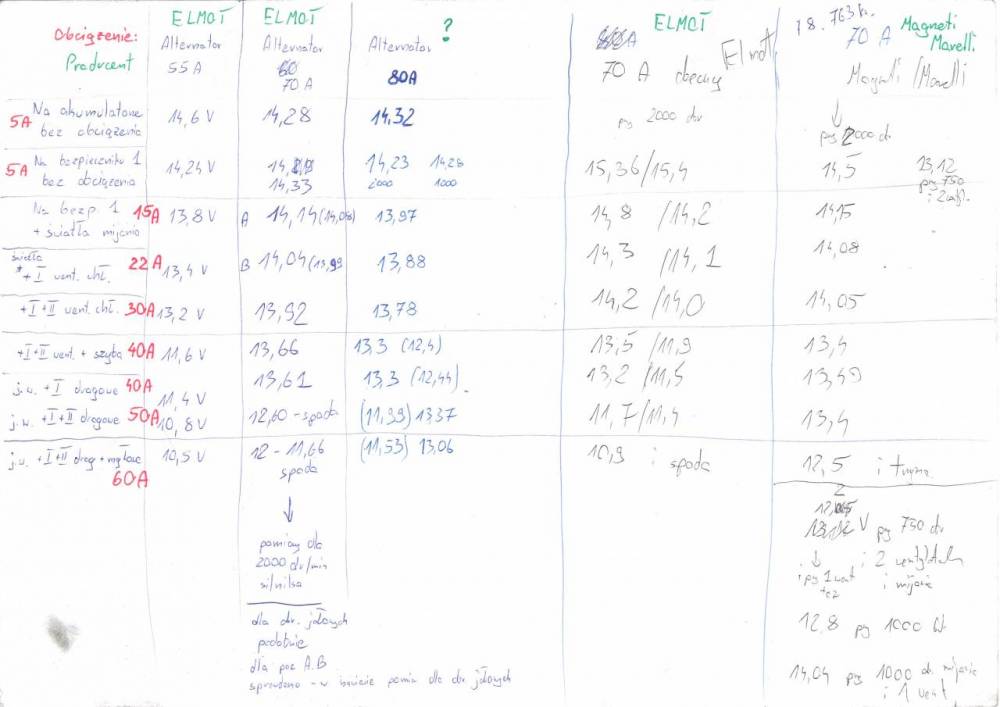 Obciążenie:
Producent
ELMOT
Alternator
55A
ELMOT
Alternator
70A
?
Alternator
80A
ELMOT
70 A obecny
Elmot
przy 2000 obr
18. 763 kr.
70 A
Magneti
Marelli
Magneti /Marelli
przy 2000 obr
5A Na akumulatorze
bez obciążenia
14,6 V
14,28
14,32
5A Na bezpieczniku 1
bez obciążenia
14,24 V
14,33
14,23 14,28
2000 1000
15,36/15,4
14,5
13,12
przy 750
i 2 went.
Na bezp. 1 15A
+ światła mijania
13,8 V
A 14,14 (14,08)
13,97
14,8 /14,2
14,15
światła
* + I went. chł. 22A
13,4 V
B 14,04 (13,99
13,88
14,3 /14,1
14,08
+I+II went. chł. 30A
13,2 V
13,92
13,78
14,2 /14,0
14,05
+I+II went. + szyba 40A
11,6 V
13,66
13,3 (12,4)
13,5 /11,9
13,4
j.w. +I drogowe 40A
11,4 V
13,61
13,3 (12,44)
13,2 /11,5
13,49
j.w. +I+II drogowe 50A
10,8 V
12,60 - spada
(11,99) 13,37
11,7/11,4
13,4
j.w. +I+II drog + mgłowe
60A
10,5 V
12 - 11,66
spada
(11,53) 13,06
10,9 i spada
12,5 i trzyma
pomiary dla
2000 obr/min
silnika
dla obr. jałowych
podobnie
dla poz A.B
sprawdzono - w nawiasie pomiar dla obr jałowych
V przy 750 obr
i 2 wentylatorach
i przy 1 went
i mijania
12,8 przy 1000 obr.
14,04 przy 1000 obr. mijania
i 1 went